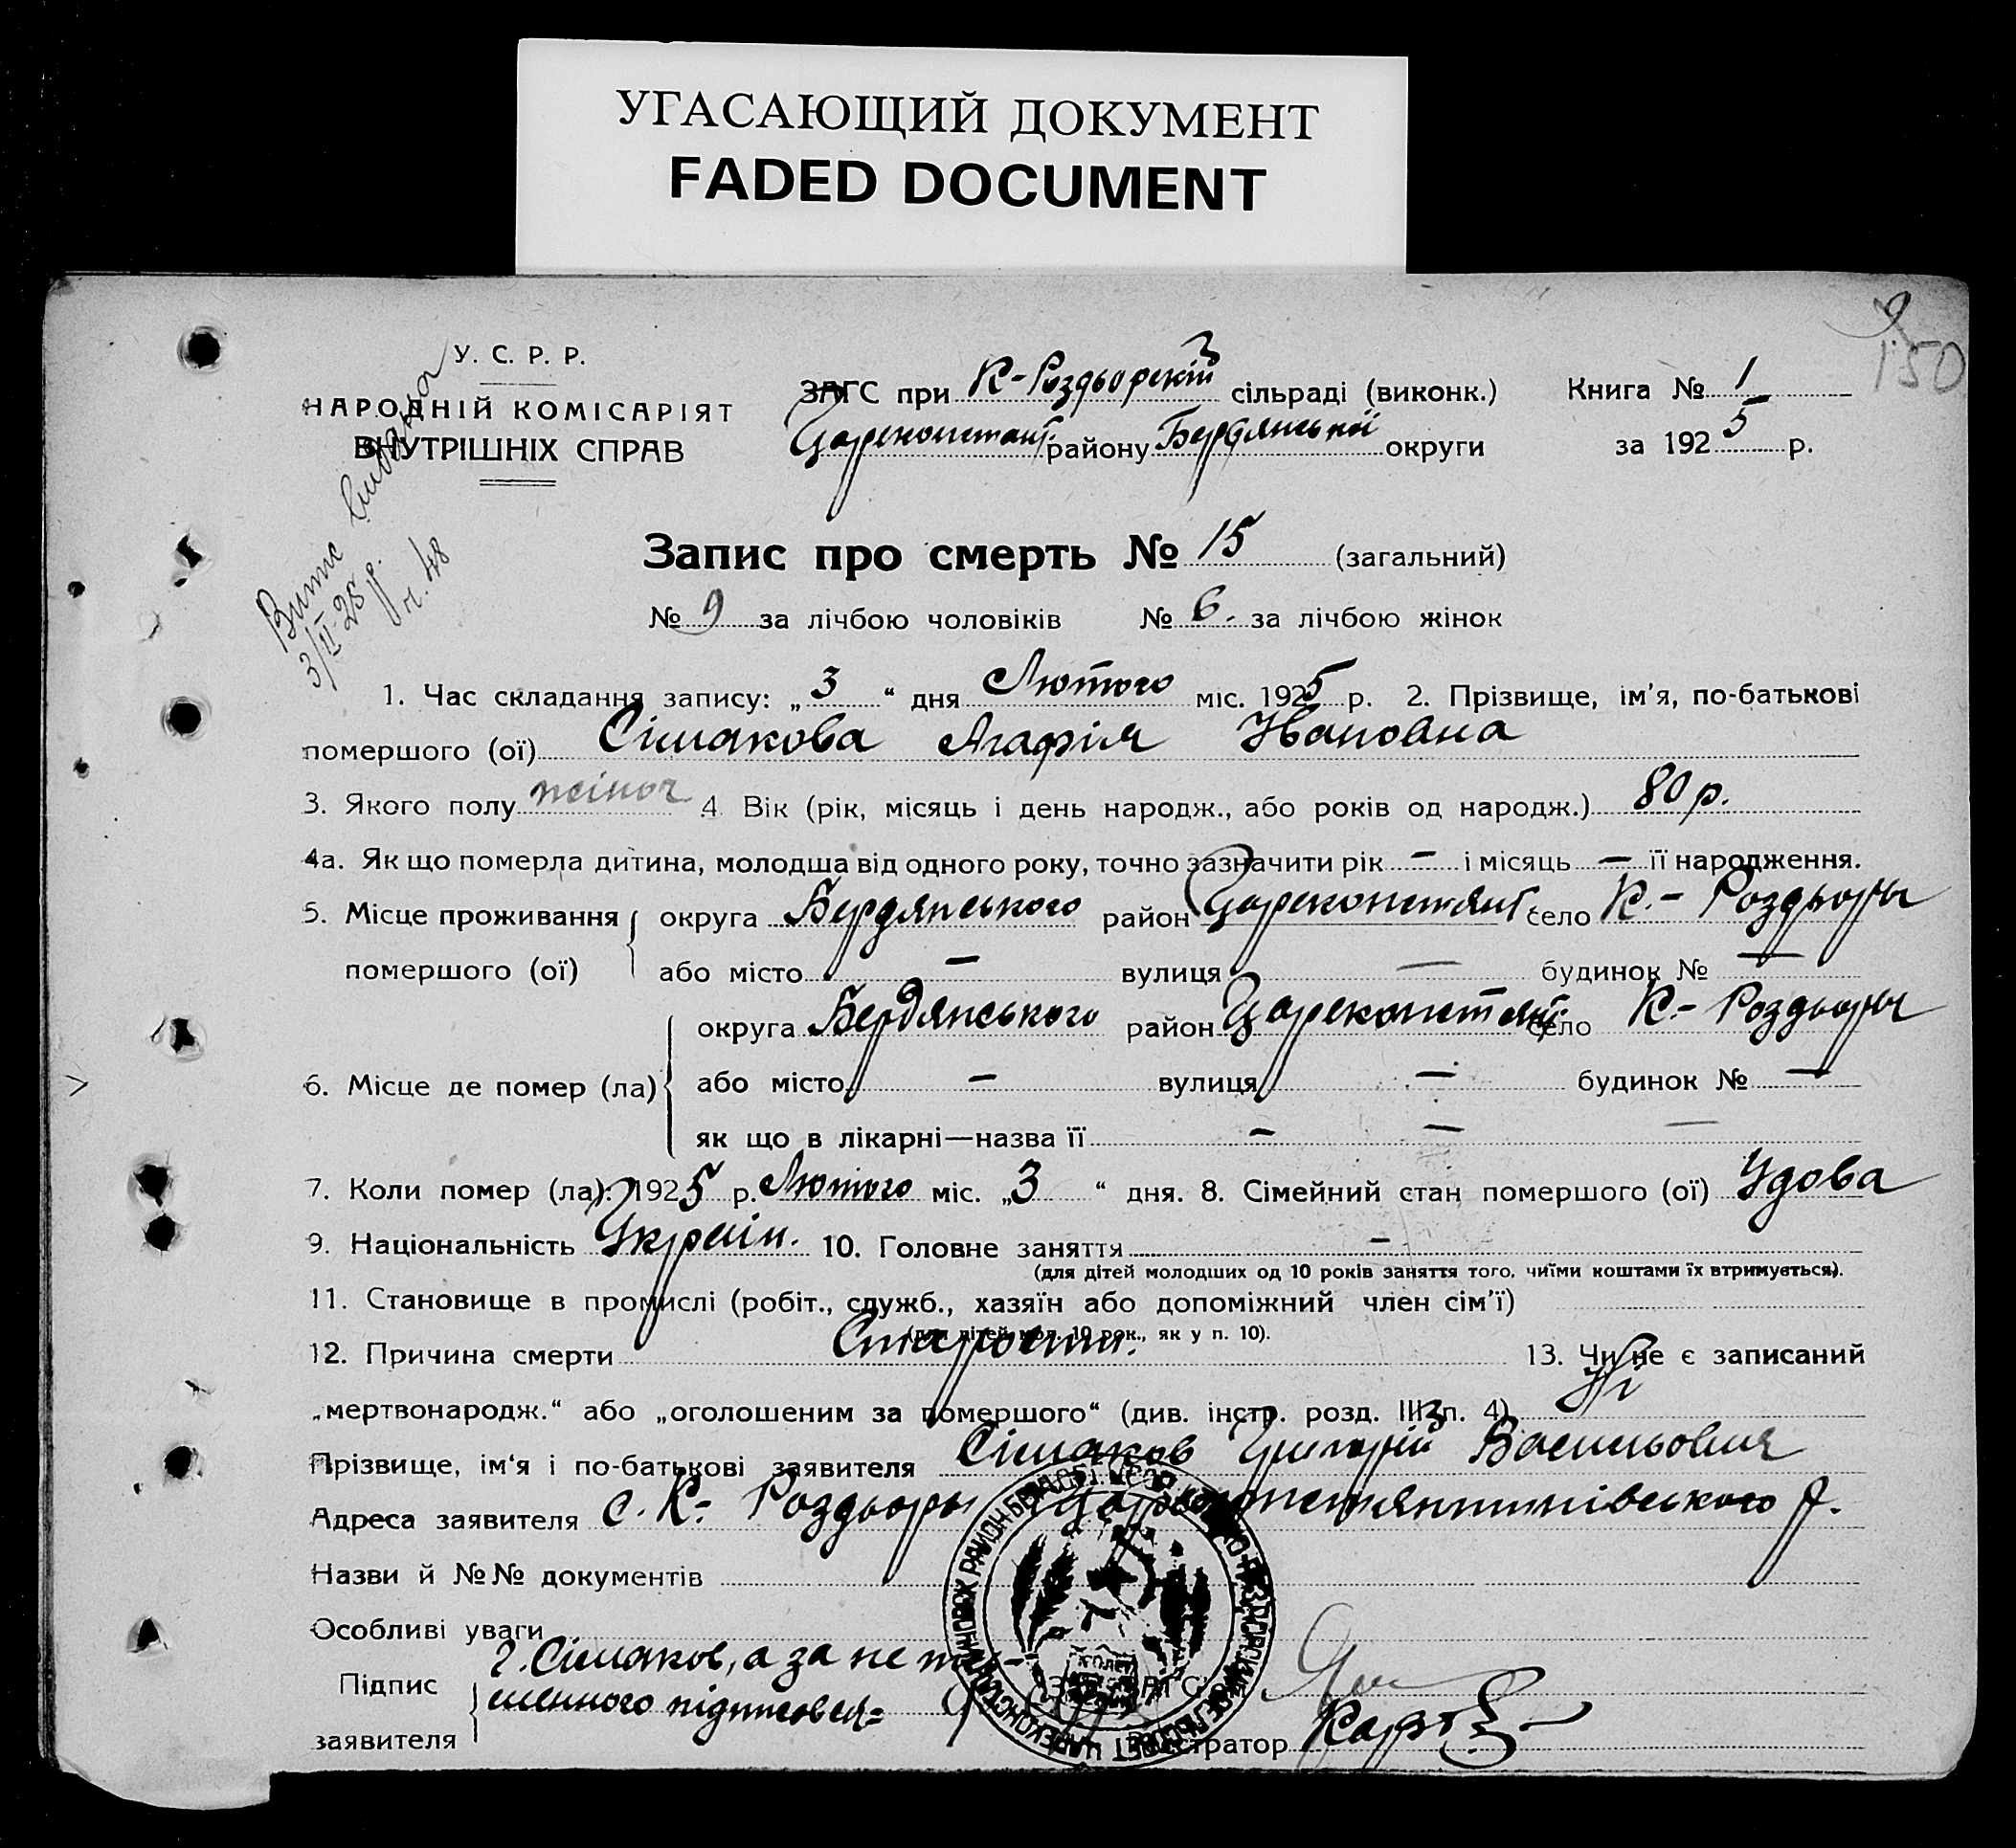 УГАСАЮЩИЙ ДОКУМЕНТ
FADED DOCUMENT
150
У. С. Р. Р.
НАРОДНІЙ КОМІСАРІЯТ
ВНУТРІШНІХ СПРАВ
ЗАГС при К-Роздьорскій сільраді (виконк.) Книга № 1
Цареконстант. району Бердянської округи за 1925 р.
3/II-25 р.
ч. 48
Запис про смерть № 15 (загальний)
№ 9 за лічбою чоловіків № 6. за лічбою жінок
1. Час складання запису: „3“ дня Лютого міс. 1925 р. 2. Прізвище, ім’я, по-батькові
помершого (ої) Сімакова Агафія Ивановна
3. Якого полу жіноч 4 Вік (рік, місяць і день народж., або років од народж.) 80 р.
4а. Як що померла дитина, молодша від одного року, точно зазначити рік – і місяць – її народження.
5. Місце проживання округа Бердянського район Цареконстянт. село К.- Роздьоры
помершого (ої) або місто – вулиця – будинок № –
округа Бердянського район Цареконстянт. село К.- Роздьоры
6. Місце де помер (ла) або місто – вулиця – будинок № –
як що в лікарні—назва її – – –
7. Коли помер (ла): 1925 р. Лютого міс. „3“ дня. 8. Сімейний стан помершого (ої) Удова
9. Національність Україн. 10. Головне заняття –
(для дітей молодших од 10 років заняття того, чиїми коштами їх втримується).
11. Становище в промислі (робіт., служб., хазяїн або допоміжний член сім’ї)
(для дітей мол. 10 рок., як у п. 10).
12. Причина смерти Старости. 13. Чи не є записаний
„мертвонародж.“ або „оголошеним за помершого“ (див. інстр. розд. III п. 4) Ні
Прізвище, ім‘я і по-батькові заявителя Сімаков Григорій Васильович
Адреса заявителя с. К.- Роздьоры Цареконстянтинівського р.
Назви й №№ документів
Особливі уваги
Підпис Г. Сімаков, а за не
заявителя
Зав. ЗАГС‘ом
Реєстратор